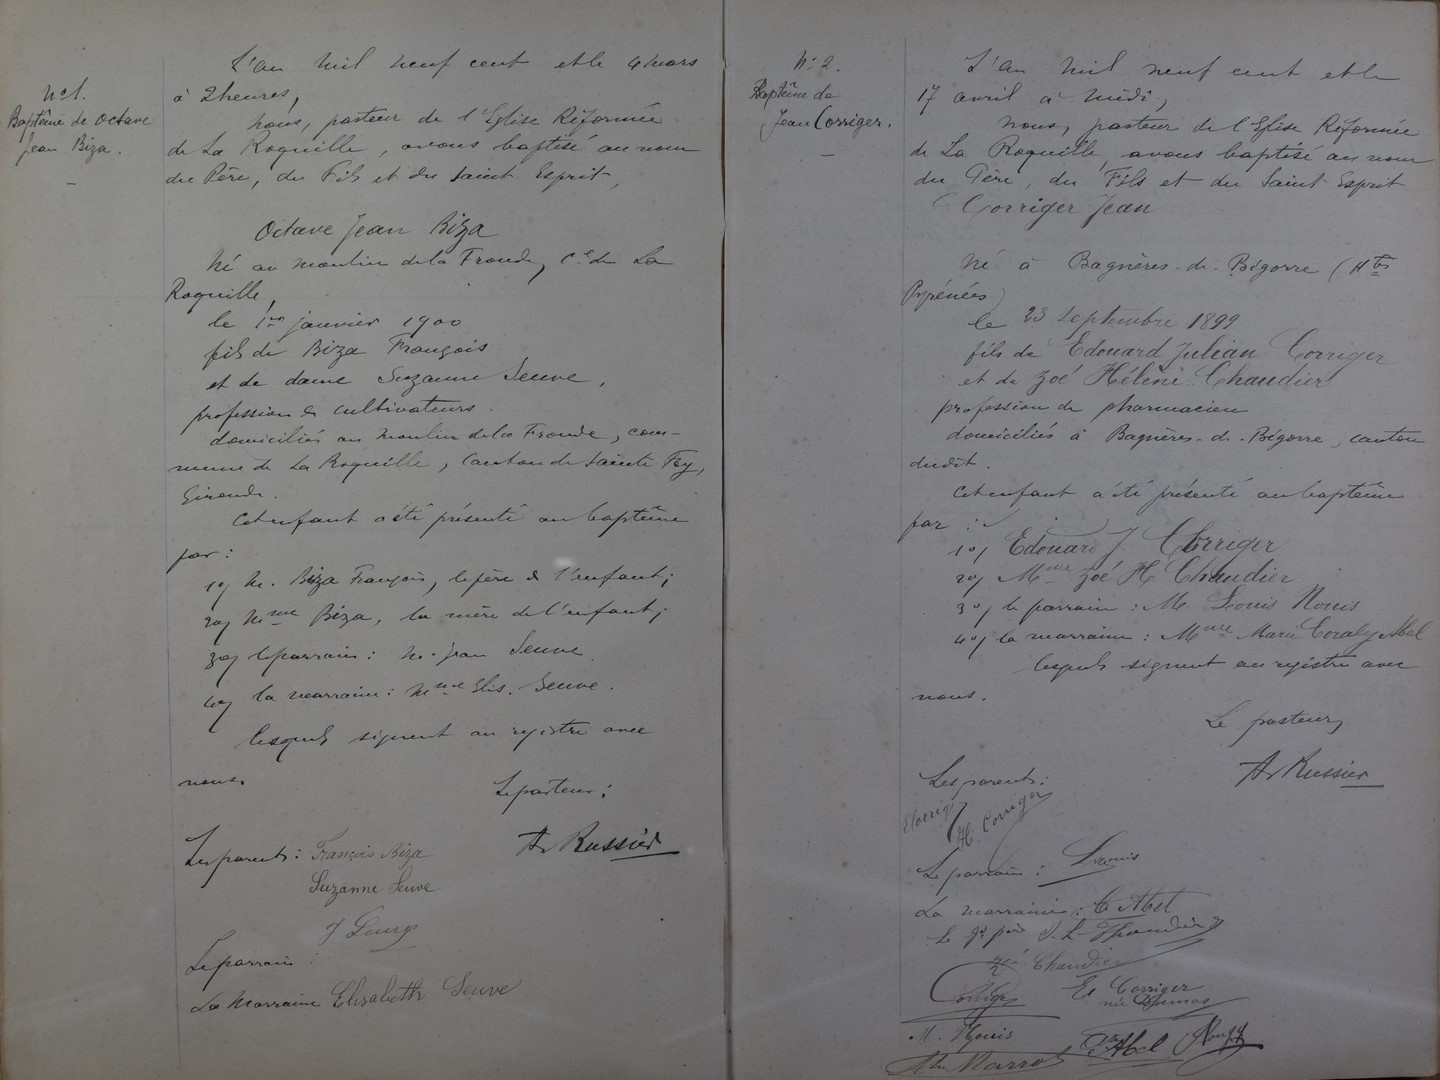 No 1.
Baptême de Octave
Jean Biza.
L'an mil neuf cent et le 4 mars
à 2 heures,
nous, pasteur de l'Eglise Réformée
de La Roquille, avons baptisé au nom
du Père, du Fils et du Saint Esprit,
Octave Jean Biza
né au moulin de la Fronde, Cne de La
Roquille,
le 1er janvier 1900
fils de Biza François
et de dame Suzanne Seuve,
profession de cultivateurs.
domiciliés au Moulin de la Fronde, com-
mune de La Roquille, Canton de Sainte Foy,
Gironde.
Cet enfant a été présenté au baptême
par :
1o/ M. Biza François, le père de l'enfant;
2o/ Mme Biza, la mère de l'enfant;
3o/ le parrain : M. Jean Seuve.
4o/ la marraine : Mme Elis. Seuve.
lesquels signent au registre avec
nous.
Le pasteur :
Les parents : François Biza
Ar Russier
Suzanne Seuve
J
Le parrain :
La Marraine Elisabeth Seuve
No 2.
Baptême de
Jean Corriger.
L'an mil neuf cent et le
17 avril à midi,
nous, pasteur de l'Eglise Réformée
de La Roquille, avons baptisé au nom
du Père, du Fils et du Saint Esprit
Corriger Jean
né à Bagnères-de-Bigorre (Htes
Pyrénées)
le 23 Septembre 1899
fils de Edouard Julian Corriger
et de Zoé Hélène Chaudier
profession de pharmacien
domiciliés à Bagnères-de-Bigorre, canton
dudit.
Cet enfant a été présenté au baptême
par :
1o/ Edouard J. Corriger
2o/ Mme Zoé H. Chaudier
3o/ le parrain : M. Louis Nouis
4o/ la marraine : Mme Marie Coraly Abel
lesquels signent au registre avec
nous.
Le pasteur,
Ar Russier
Les parents :
H. Corriger
Le parrain : L. Nouis
La marraine : C. Abel
Le gd père
Chaudier
Corriger
El Corriger
née Dumas
M. Nouis
Abel